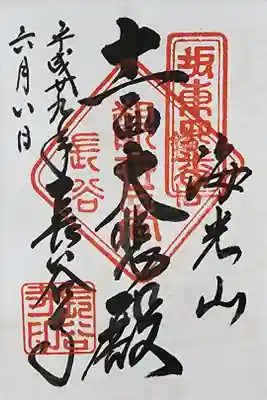 海光山
十一面大悲殿
長谷
平成廿九年
長谷寺
六月八日
長谷寺印